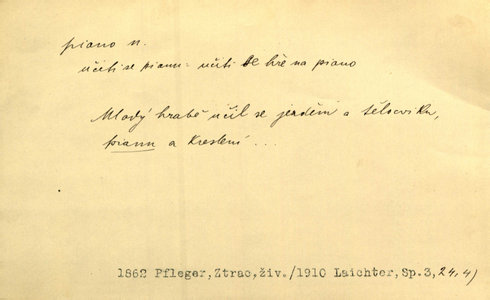 piano n.
učiti se pianu: učiti se hře na piano
Mladý hrabě učil se jezdění a tělocviku,
pianu a kreslení ...
1862 Pfleger, Ztrac, živ./1910 Laichter, Sp.3, 24, 4)